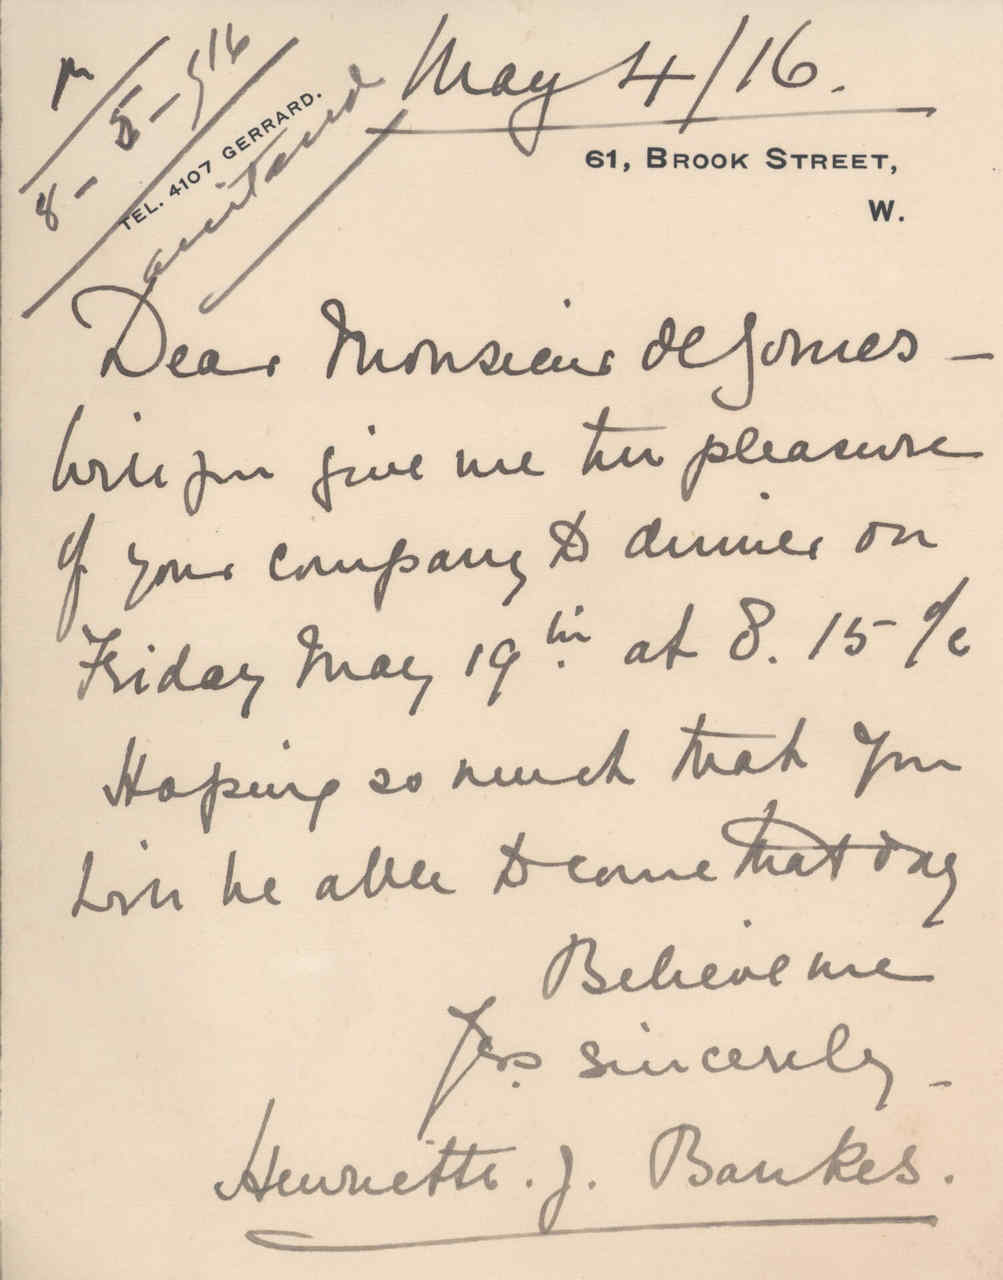 8-5-916
TEL. 4107 GERRARD.
May 4/16.
61, BROOK STREET,
W.
Dear Monsieur de Gomes -
Will you give me the pleasure
of your company to dinner on
Friday May 19th at 8.15 o/c
Hoping so much that you
will be able to come that day
Believe me
Yrs. sincerely -
Henrietta. J. Bankes.